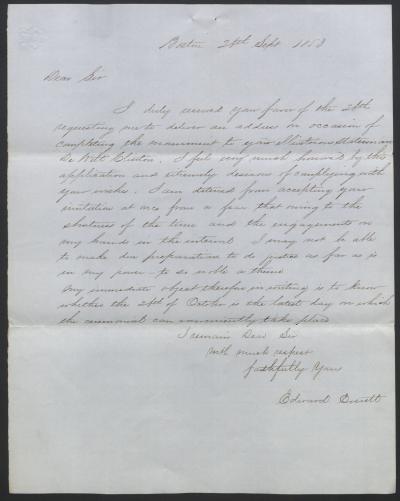 Boston 28th Sept 1853
Dear Sir
I duly received your favor of the 26th
requesting me to deliver an address on occasion of
completing the monument to your illustrious statesman
De Witt Clinton. I feel very much honored by this
application and extremely desirous of complying with
your wishes. I am deterred from accepting your
invitation at once from a fear that owing to the
shortness of the time and the engagements on
my hands in the interval I may not be able
to make due preparation to do justice as far as is
in my power - to so noble a theme
My immediate object therefore in writing is to know
whether the 26th of October is the latest day on which
the ceremonial can conveniently take place
I remain Dear Sir
with much respect
faithfully Yours
Edward Everett